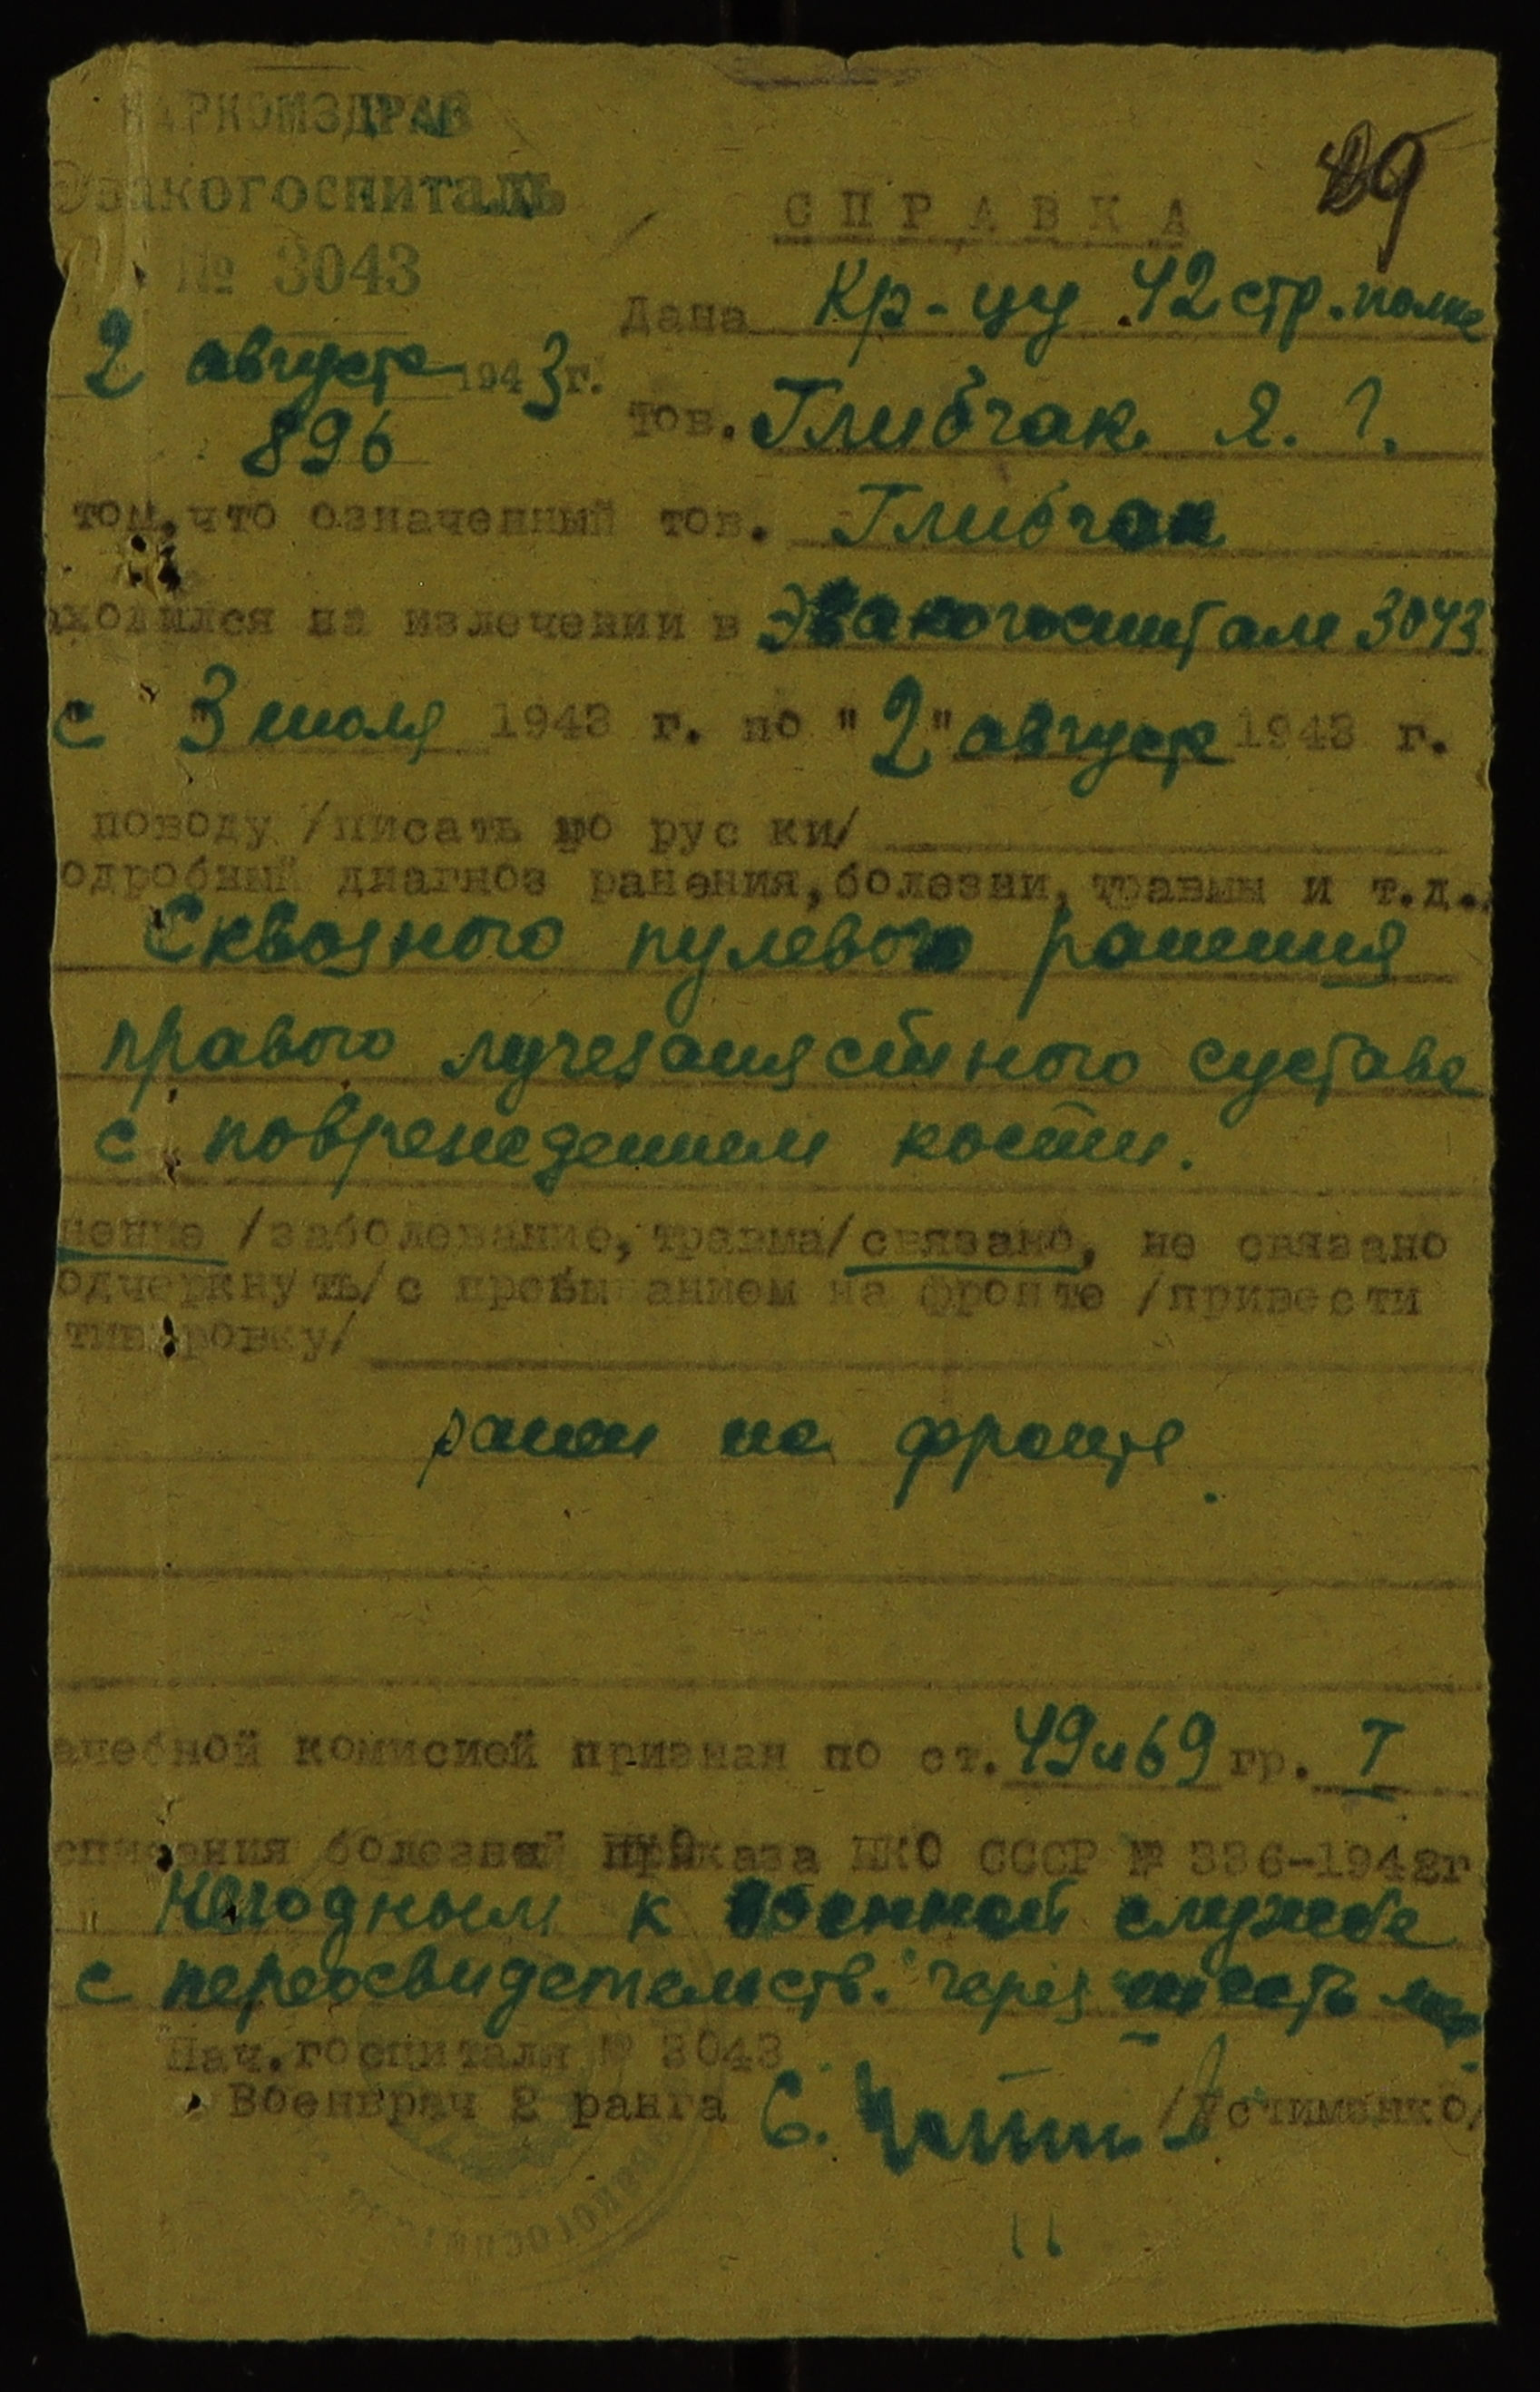 НАРКОМЗДРАВ
Эвакогоспиталь
№ 3043
29
СПРАВКА
Дана Кр-цу 42 стр. полка
2 августа 1943 г.
896
тов. Глибчак Я. Г.
том, что означенный тов. Глибчак
аходился на излечении в Эвакогоспитале 3043
с "3 июля 1943 г. по "2" августа 1943 г.
поводу /писать по рус ки/
одробный диагноз ранения, болезни, травмы и т.д.
Сквозного пулевого ранения
правого лучезапястного сустава
с повреждением кости.
нение /заболевание, травма/ связано, не связано
одчеркнуть/ с пребыванием на фронте /привести
тивировку/
ранен на фронте.
ачебной комисией признан по ст. 49 и 69 гр. I
списания болезней приказа НКО СССР № 336-1942г
" Негодным к военной службе
с переосвидетельств. через шесть мес
Нач. госпиталя № 3043
Военврач 2 ранга /Устименко/